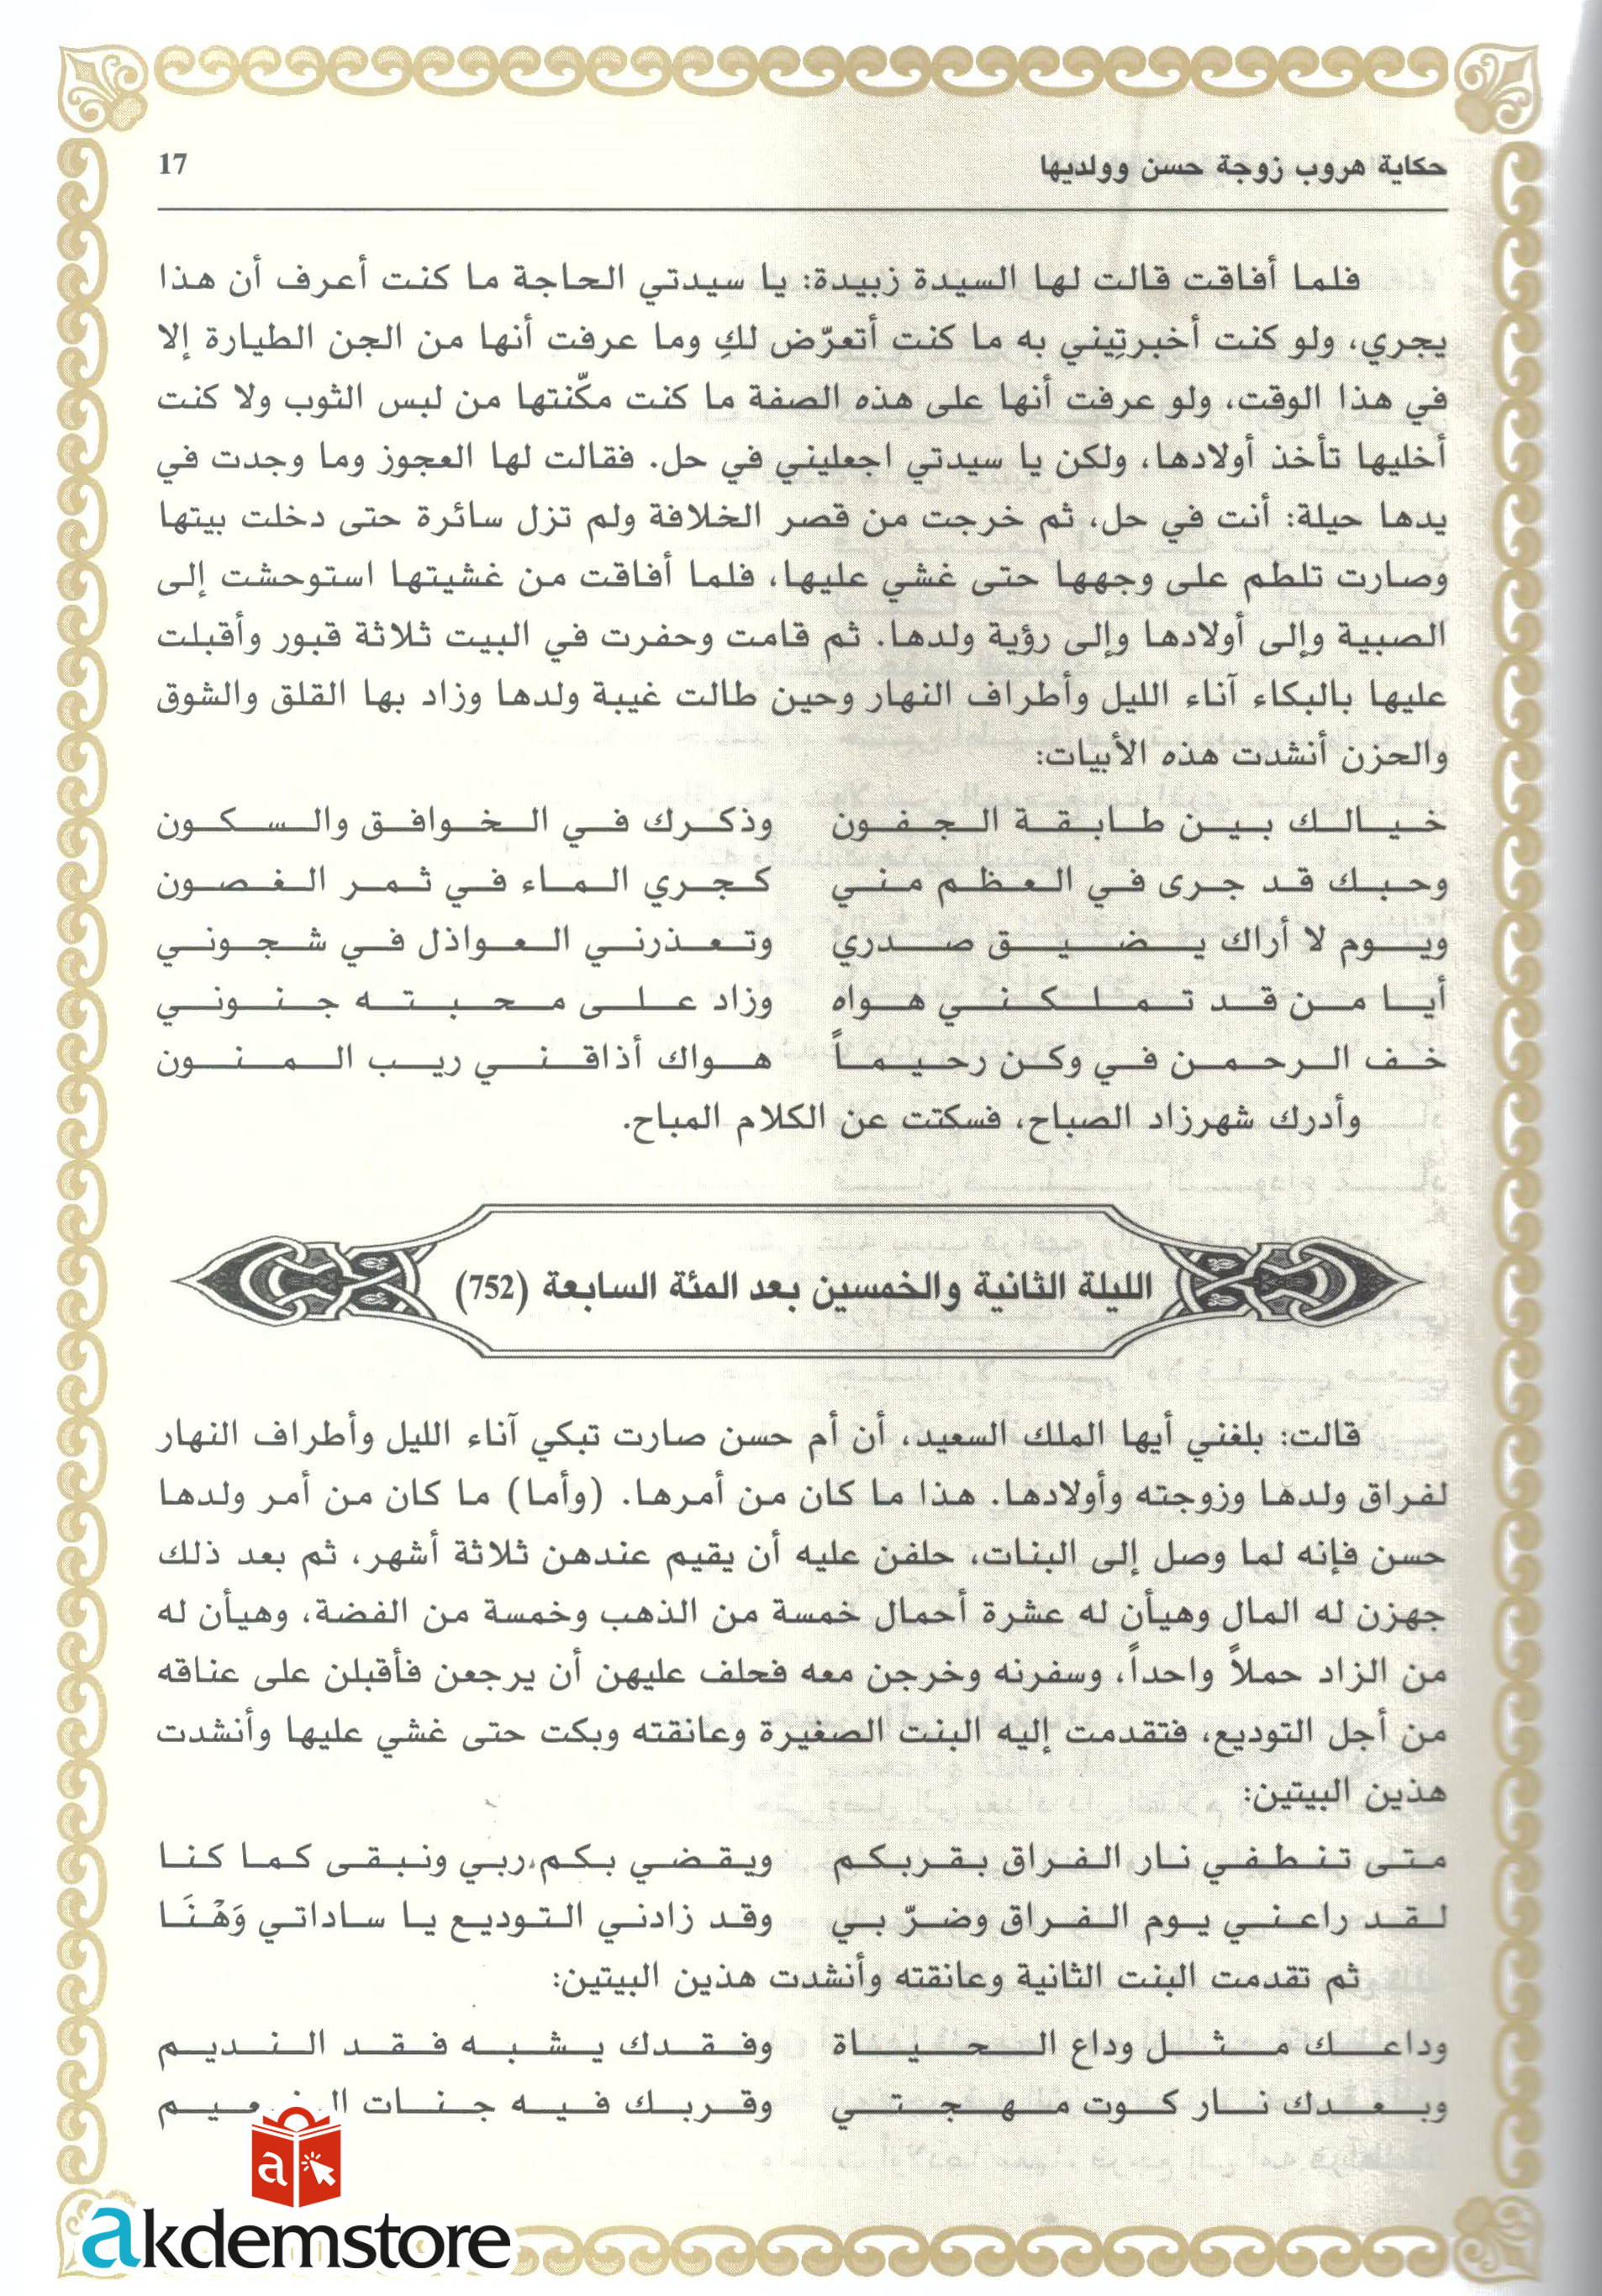 حكاية هروب زوجة حسن وولديها 17
فلما أفاقت قالت لها السيدة زبيدة: يا سيدتي الحاجة ما كنت أعرف أن هذا
يجري، ولو كنت أخبرتِيني به ما كنت أتعرّض لكِ وما عرفت أنها من الجن الطيارة إلا
في هذا الوقت، ولو عرفت أنها على هذه الصفة ما كنت مكّنتها من لبس الثوب ولا كنت
أخليها تأخذ أولادها، ولكن يا سيدتي اجعليني في حل. فقالت لها العجوز وما وجدت في
يدها حيلة: أنت في حل، ثم خرجت من قصر الخلافة ولم تزل سائرة حتى دخلت بيتها
وصارت تلطم على وجهها حتى غشي عليها، فلما أفاقت من غشيتها استوحشت إلى
الصبية وإلى أولادها وإلى رؤية ولدها. ثم قامت وحفرت في البيت ثلاثة قبور وأقبلت
عليها بالبكاء آناء الليل وأطراف النهار وحين طالت غيبة ولدها وزاد بها القلق والشوق
والحزن أنشدت هذه الأبيات:
خيالك بين طابقة الجفون وذكرك في الخوافق والسكون
وحبك قد جرى في العظم مني كجري الماء في ثمر الغصون
ويوم لا أراك يضيق صدري وتعذرني العواذل في شجوني
أيا من قد تملكني هواه وزاد على محبته جنوني
خف الرحمن في وكن رحيماً هواك أذاقني ريب المنون
وأدرك شهرزاد الصباح، فسكتت عن الكلام المباح.
الليلة الثانية والخمسين بعد المئة السابعة (752)
قالت: بلغني أيها الملك السعيد، أن أم حسن صارت تبكي آناء الليل وأطراف النهار
لفراق ولدها وزوجته وأولادها. هذا ما كان من أمرها. (وأما) ما كان من أمر ولدها
حسن فإنه لما وصل إلى البنات، حلفن عليه أن يقيم عندهن ثلاثة أشهر، ثم بعد ذلك
جهزن له المال وهيأن له عشرة أحمال خمسة من الذهب وخمسة من الفضة، وهيأن له
من الزاد حملاً واحداً، وسفرنه وخرجن معه فحلف عليهن أن يرجعن فأقبلن على عناقه
من أجل التوديع، فتقدمت إليه البنت الصغيرة وعانقته وبكت حتى غشي عليها وأنشدت
هذين البيتين:
متى تنطفي نار الفراق بقربكم ويقضي بكم ربي ونبقى كما كنا
لقد راعني يوم الفراق وضرّ بي وقد زادني التوديع يا ساداتي وَهْنَا
ثم تقدمت البنت الثانية وعانقته وأنشدت هذين البيتين:
وداعك مثل وداع الحياة وفقدك يشبه فقد النديم
وبعدك نار كوت مهجتي وقربك فيه جنات النعيم
a
akdemstore